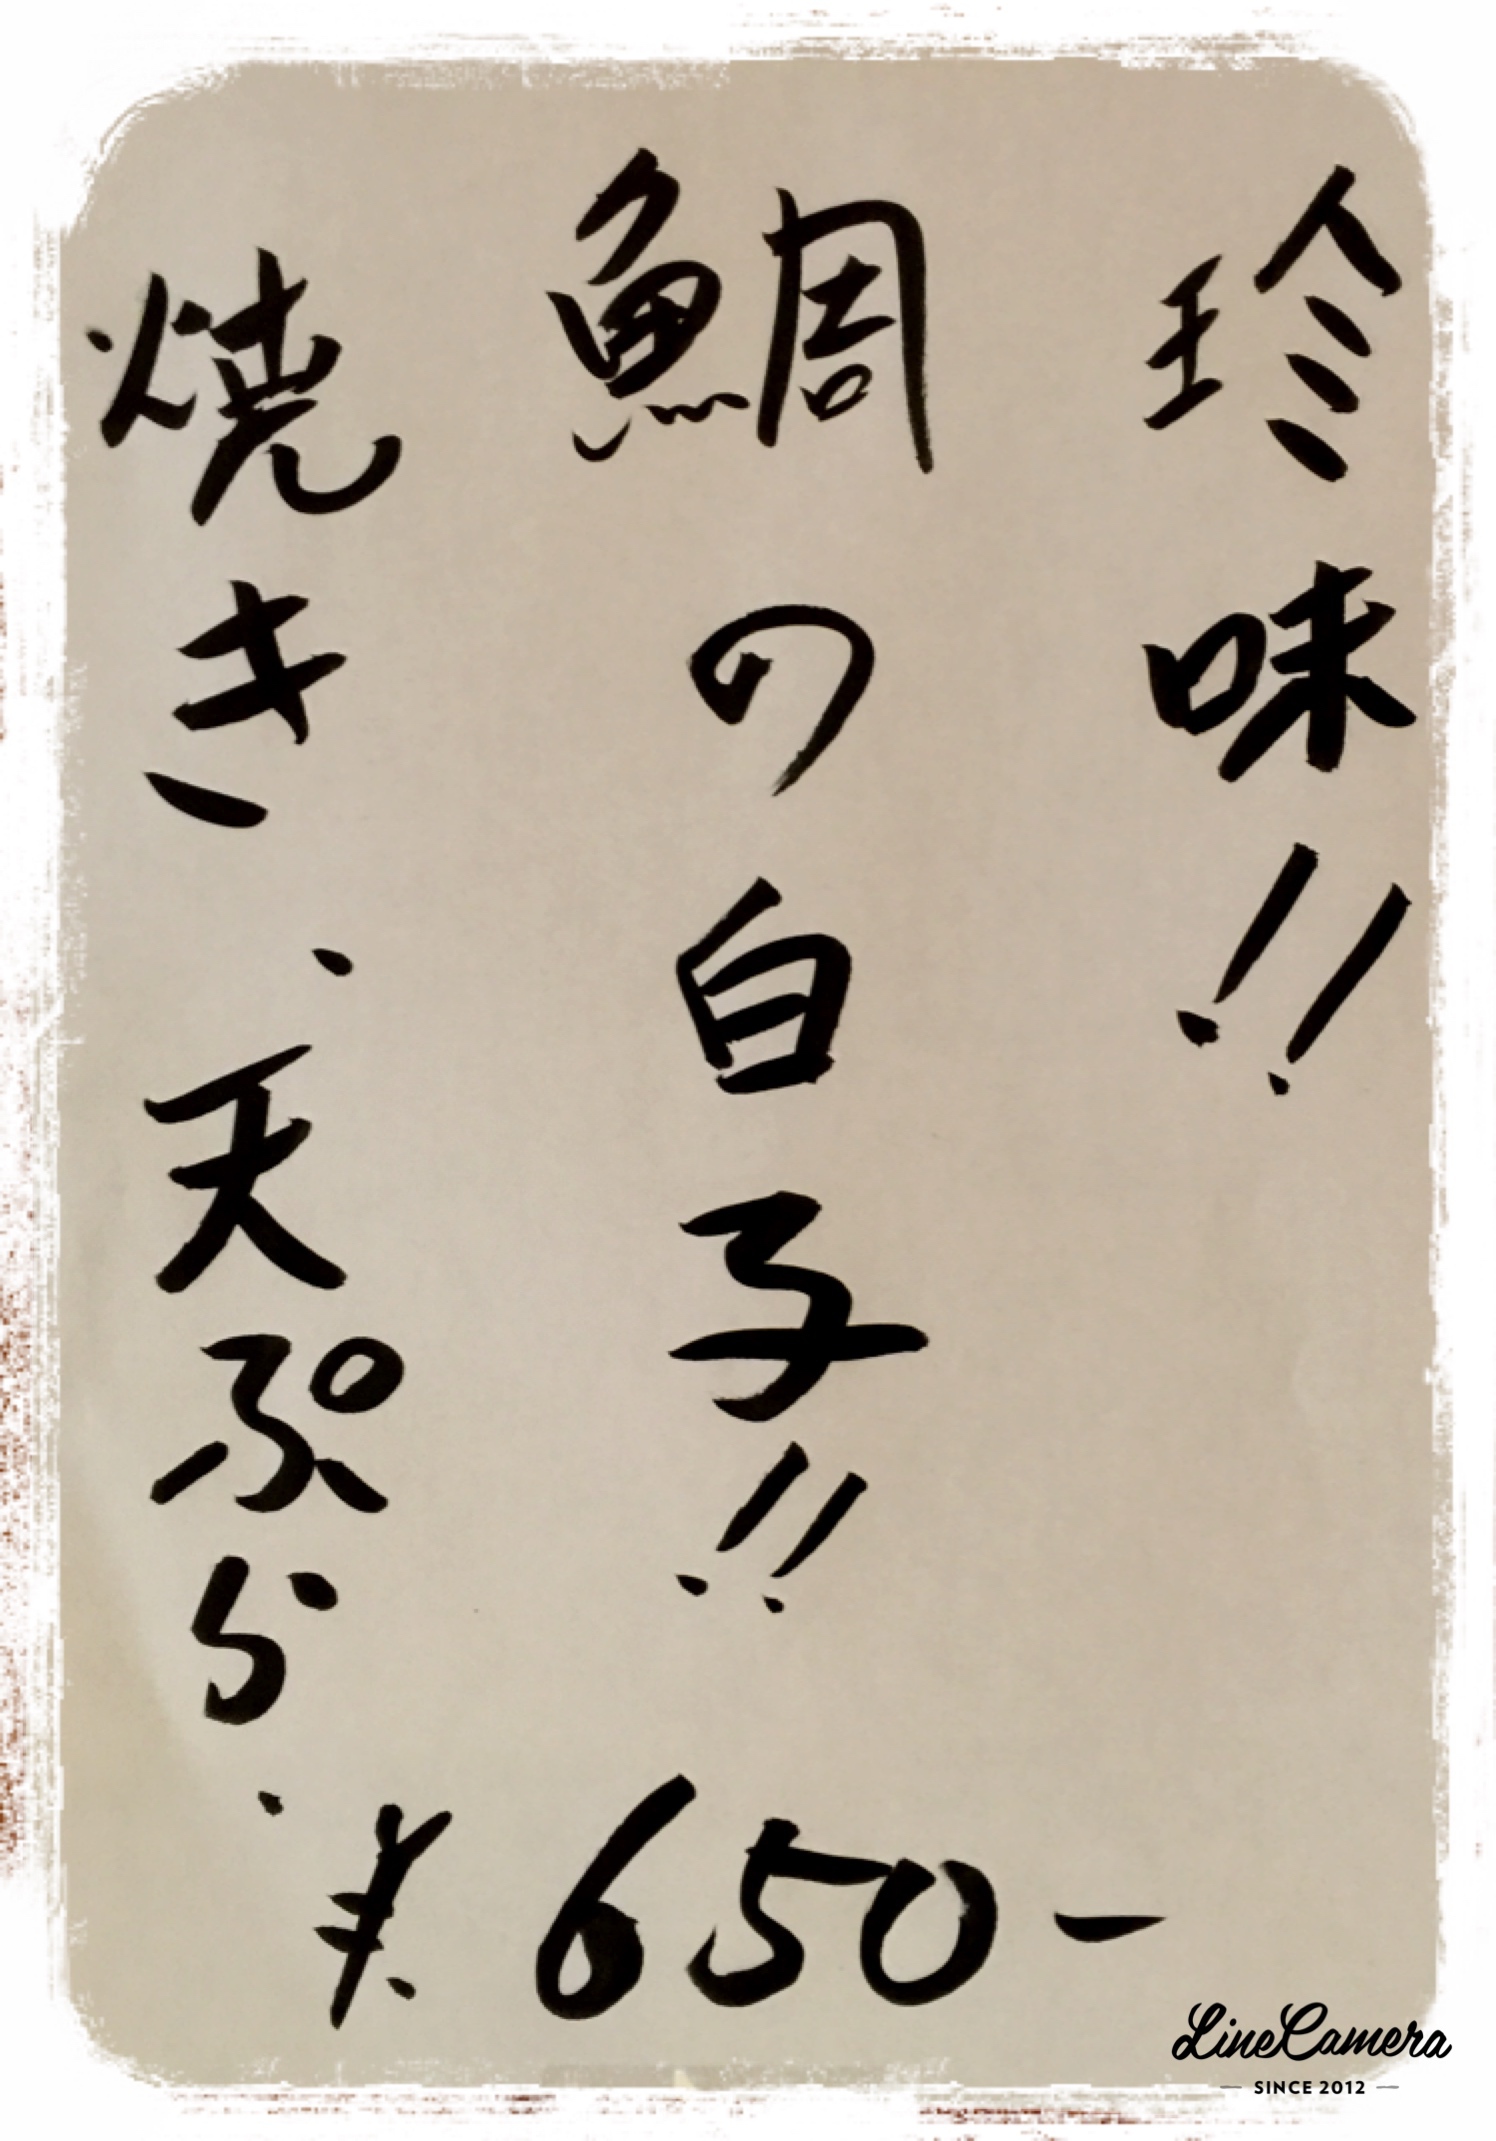 珍味!!
鯛の白子!!
焼き、天ぷら、
¥650-
LineCamera
SINCE 2012